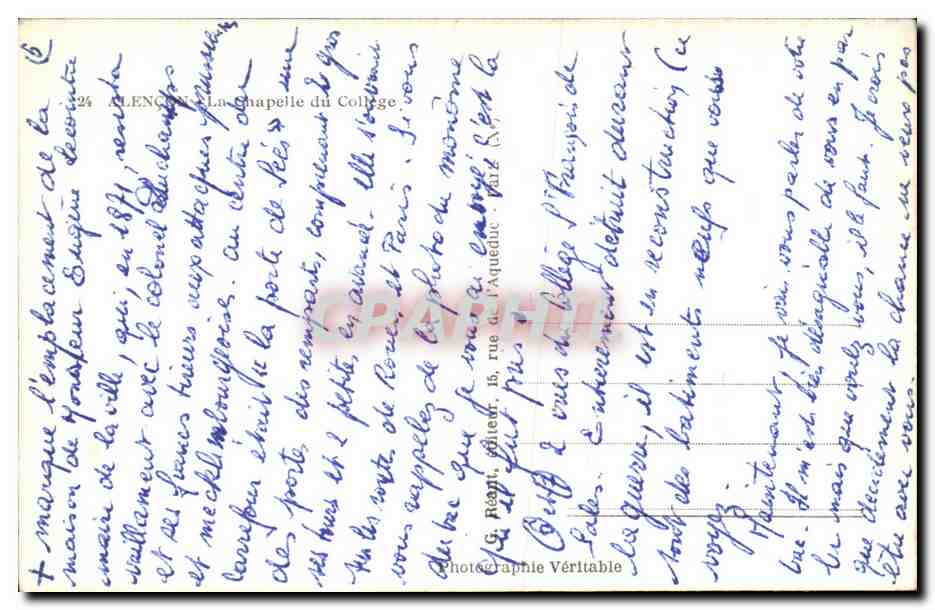 (6
+ marque l'emplacement de la
maison de Monsieur Eugène Lecointre
maire de la ville, qui, en 1871, resista
vaillamment avec le colonel
et ses francs tireurs aux attaques prussiennes
et mecklembourgeoises. Au centre du
carrefour était la "porte de Sées" une
des portes des remparts, comprenant 2 gros
ses tours et 2 petites en avant. elle s'ouvrait
sur les routes de Rouen et Paris. Si vous
vous rappelez de la photo du monôme
du bac que je vous ai envoyé c'est là
qu'elle fut prise.
2 vues du collège St François de
Sales. Entièrement détruit durant
la guerre, il est en reconstruction (ce
sont des batiments neufs que vous
voyez.
Maintenant je vais vous parler de votre
bac. Il m'est bien désagréable de vous en par
ler mais que voulez vous, il le faut. Je crois
que décidément la chance ne veut pas
être avec vous.
24 ALENÇON - La Chapelle du Collège
G. Réant, éditeur, 15, rue de l'Aqueduc - Paris
Photographie Véritable
CPARPHIL